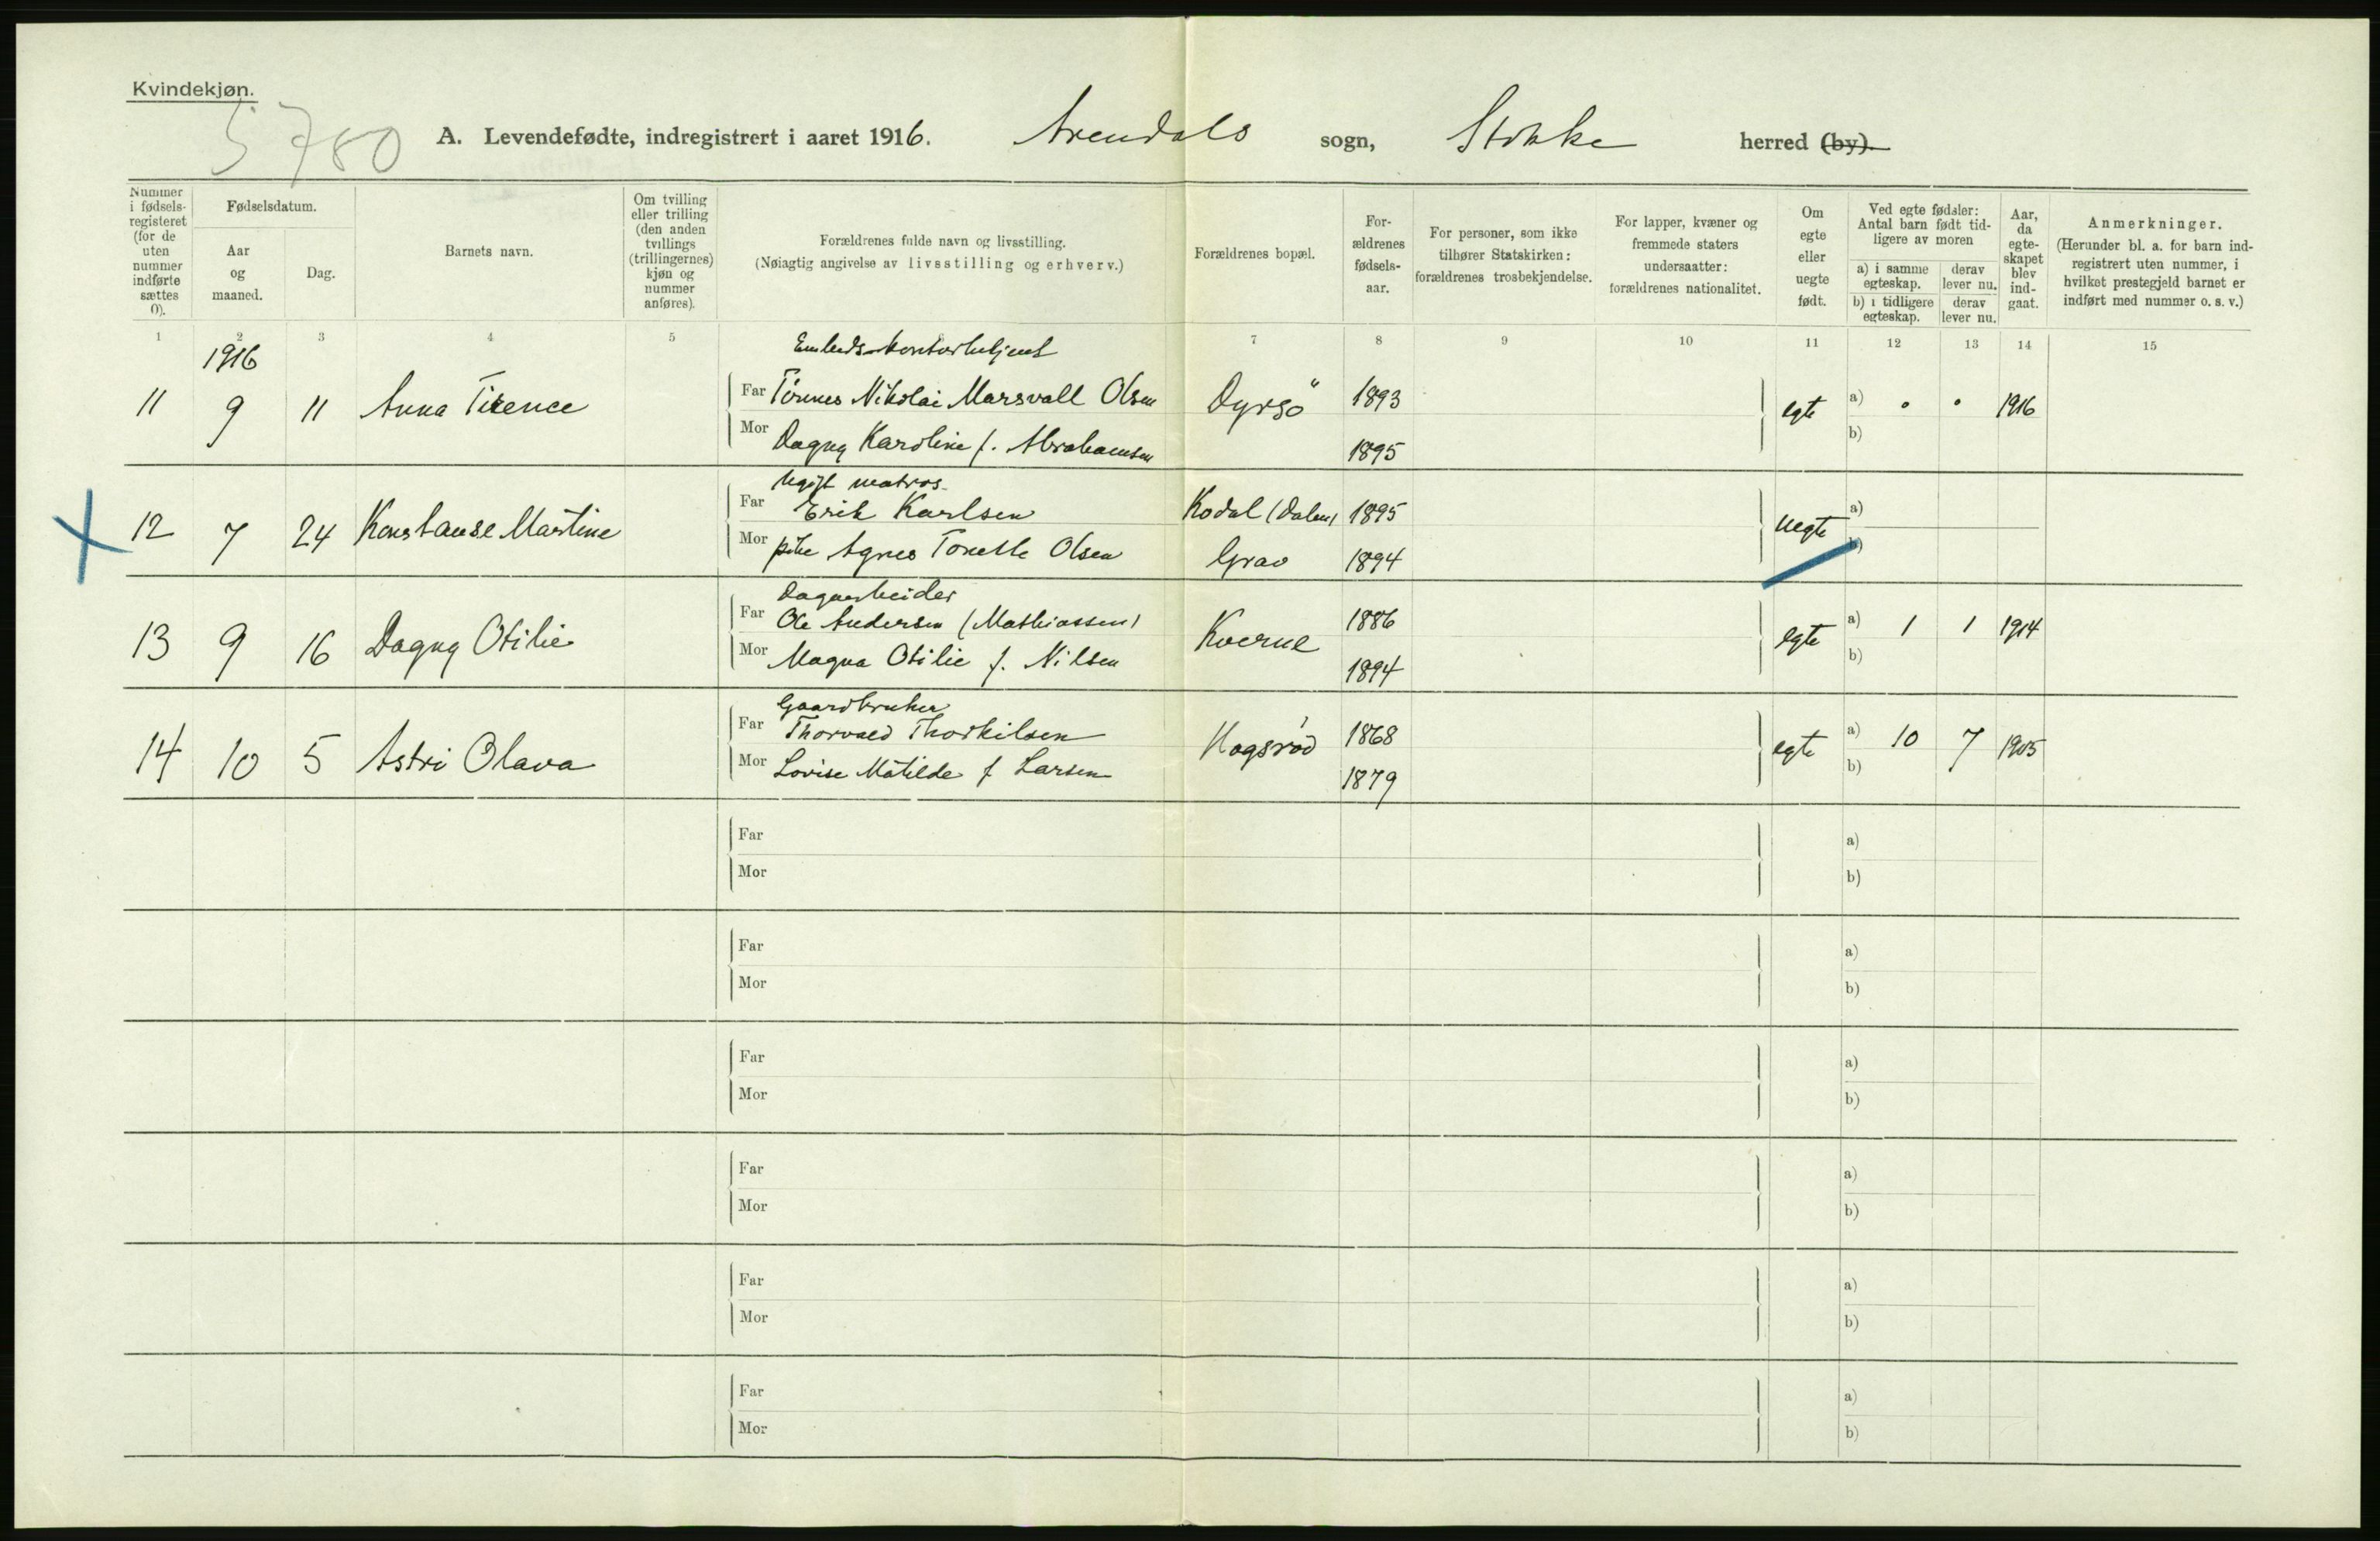 Kvindekjøn.
5780
A. Levendefødte, indregistrert i aaret 1916. Arendals sogn, Stokke herred (by).
Nummer i fødsels-registeret (for de uten nummer indførte sættes 0).
Fødselsdatum.
Aar og maaned.
Dag.
Barnets navn.
Om tvilling eller trilling (den anden tvillings (trillingernes) kjøn og nummer anføres).
Forældrenes fulde navn og livsstilling.
(Nøiagtig angivelse av livsstilling og erhverv.)
Forældrenes bopæl.
For-ældrenes fødsels-aar.
For personer, som ikke tilhører Statskirken: forældrenes trosbekjendelse.
For lapper, kvæner og fremmede staters undersaatter: forældrenes nationalitet.
Om egte eller uegte født.
Ved egte fødsler: Antal barn født tid-ligere av moren
a) i samme egteskap.
derav lever nu.
b) i tidligere egteskap.
derav lever nu.
Aar, da egte-skapet blev ind-gaat.
Anmerkninger.
(Herunder bl. a. for barn ind-registrert uten nummer, i hvilket prestegjeld barnet er indført med nummer o. s. v.)
1 2 3 4 5 7 8 9 10 11 12 13 14 15
1916
11 9 11 Anna Tirence
Far Tirenes Nikolai Marsvall Olsen Dyrsö 1893 egte a) 0 0 1916
Mor Dagny Karoline f. Abrahamsen 1895 b)
Ugift matros
12 7 24 Konstanse Martine
Far Erik Karlsen Kodal (Dalen) 1895 uegte a)
Mor pike Agnes Tonette Olsen Grav 1894 b)
Dagarbeider
13 9 16 Dagny Otilie
Far Ole Andersen (Mathiassen) Kverne 1886 egte a) 1 1 1914
Mor Magna Otilie f. Nilsen 1894 b)
Gaardbruker
14 10 5 Astri Olava
Far Thorvald Thorkilsen Hogsrød 1868 egte a) 10 7 1905
Mor Lovise Matilde f Larsen 1879 b)
Far a)
Mor b)
Far a)
Mor b)
Far a)
Mor b)
Far a)
Mor b)
Far a)
Mor b)
Far a)
Mor b)